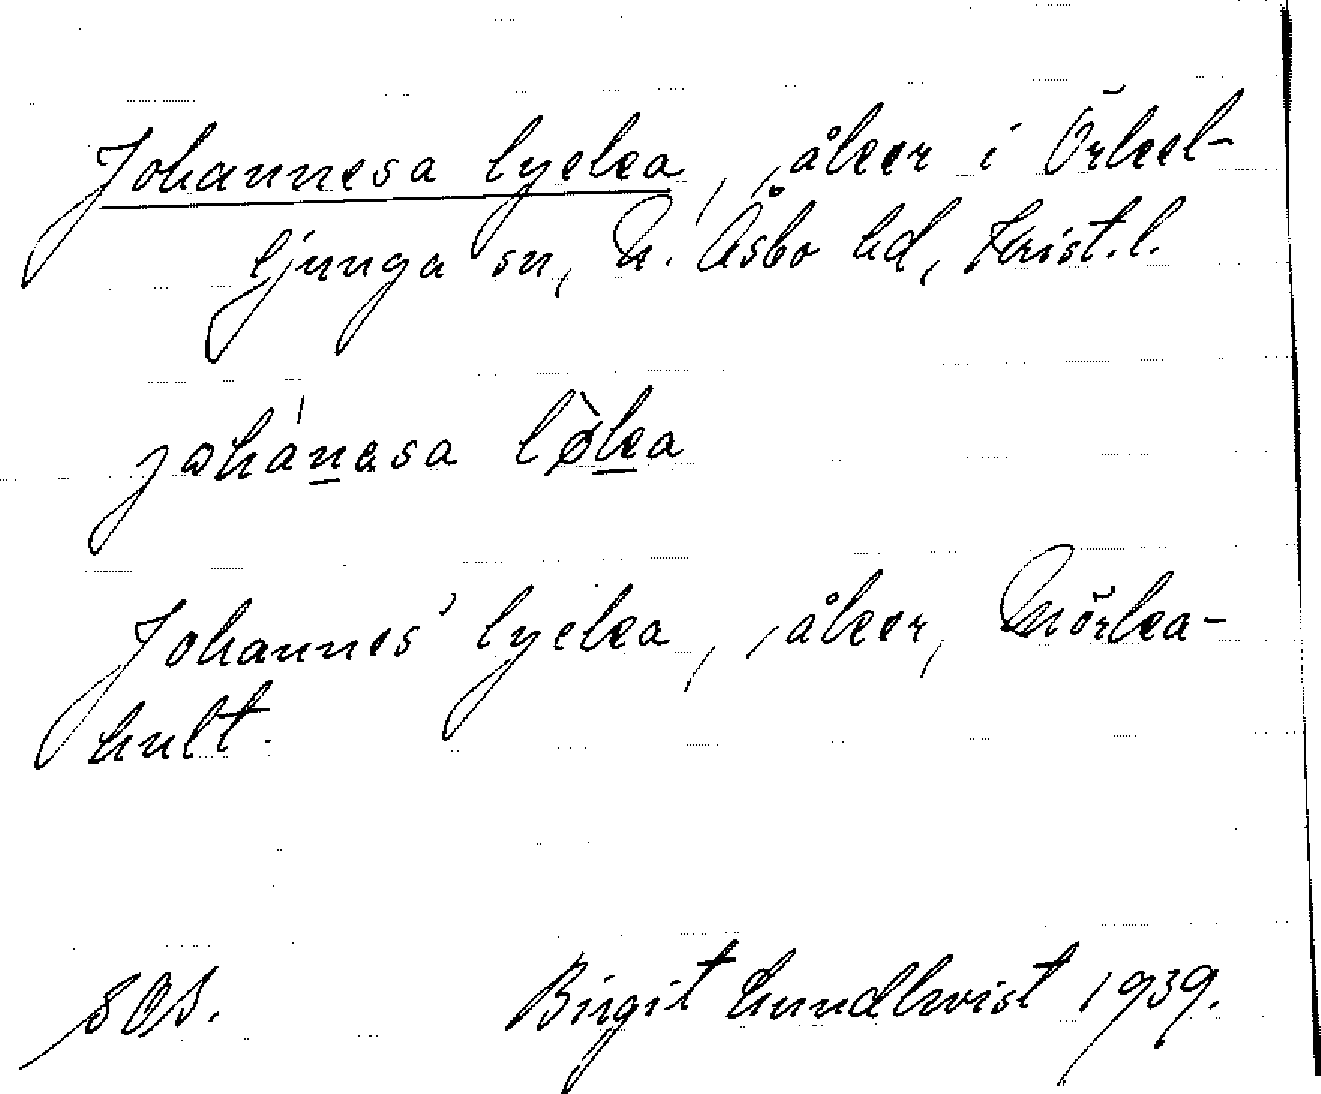 Johannesa lycka, åker i Örkel-
ljunga sn, N. Åsbo hd, Krist. l.
johánesa lø̀ka
Johannes' lycka, åker, Mörka-
hult.
SOS. Birgit Lundkvist 1939.